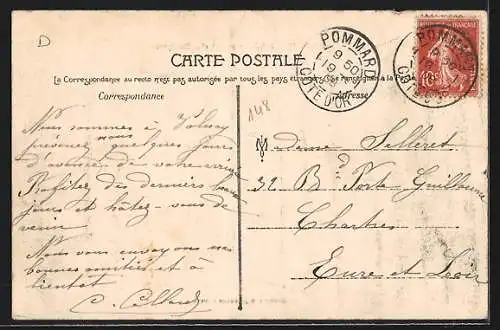 D
CARTE POSTALE
La Correspondance au recto n'est pas autorisée par tous les pays étrangers (Se renseigner à la Poste)
Correspondance
Adresse
POMMARD
9 50
19
COTE D'OR
FRANÇAISE
10
POMMARD
148
Nous sommes à Volnay
prévenez nous quelques jours
d'avance de votre
Profitez des derniers beaux
jours et hâtez-vous de
venir
Nous vous envoyons nos
bonnes amitiés et à
bientôt
C.
Madame Selleret
32 Bd Porte Guillaume
Chartres
Eure et Loir